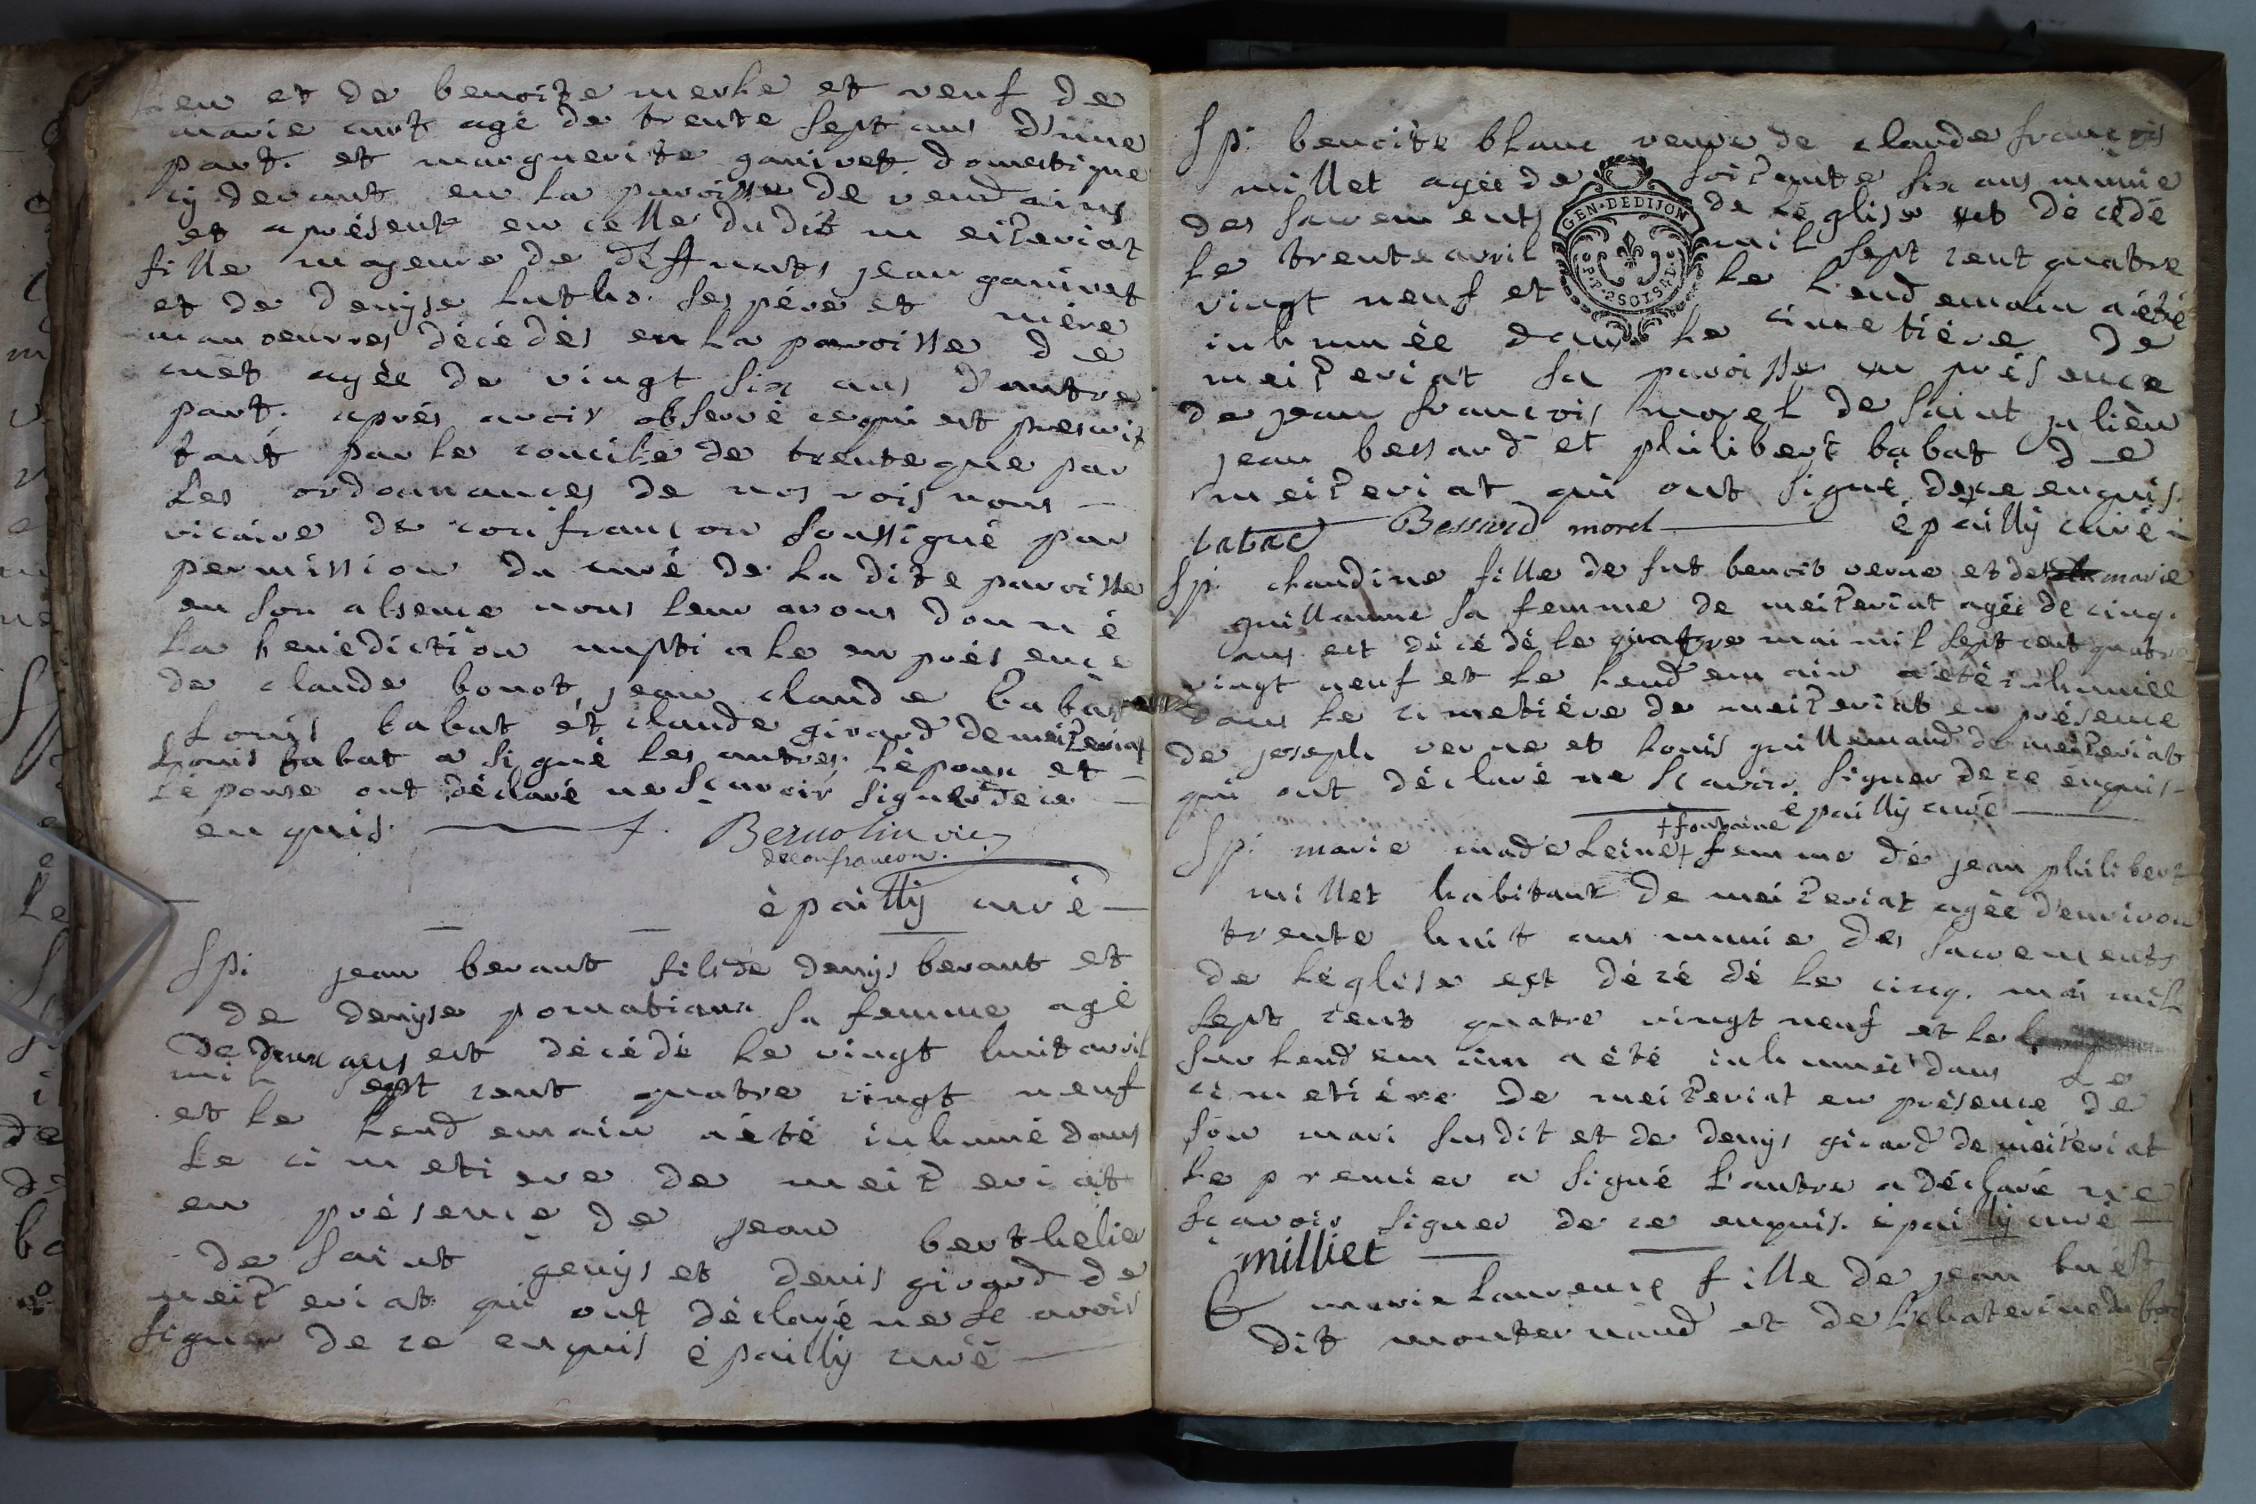 lieu et de benoite merle et veuf de
marie curt agé de trente sept ans d'une
part. et marguerite ganivet domestique
cÿ devant en la paroisse de vendains
et aprésent en celle dudit meiteriat
fille mageure de deffunts jean ganivet
et de denÿse ses pére et mère
manoeuvres décédés en la paroisse de
cuet agée de vingt six ans d'autre
part. aprés avoir observé cequi est prescrit
tant par le concile de trente que par
les ordonnances de nos rois nous —
vicaire de confrançon soussigné par
permission du curé de ladite paroisse
en son absence nous leur avons donné
la benédiction nuptiale en présence
de claude bonot, jean claude babat
louis babat et claude girard de meiteriat
louis babat a signé les autres l'époux et —
l'épouse ont déclaré ne sçavoir signer de ce —
enquis. — Bernolin vic.
deconfrancon.
épaillÿ curé —
Sp. jean berant fils de denÿs berant et
de denÿse pomatiaux sa femme agé
de deux ans est décédé le vingt huit avril
mil sept cent quatre vingt neuf
et le lendemain a été inhumé dans
le cimetiere de meiteriat
en présence de jean berthelier
de saint genÿs et denis girard de
meiteriat qui ont déclaré ne scavoir
signer de ce enquis épaillÿ curé —
Sp. benoite blanc veuve de claude françois
millet agée de soixante six ans munie
des sacrements de l'église est décédé
GEN·DEDIJON
2SOLS
le trente avril mil sept cent quatre
vingt neuf et le lendemain a été
inhumée dans le cimetiére de
meiteriat sa paroisse en présence
de jean françois morel de saint julien
jean bessard et philibert babat de
meiteriat qui ont signé de ce enquis.
babat Bessard morel — épaillÿ curé
Sp. claudine fille de fut benoit verne et de marie
guillaume sa femme de meiteriat agée de cinq.
ans est décédé le quatre mai mil sept cent quatre
vingt neuf et le lendemain a été inhumée
dans le cimetiére de meiteriat en présence
de joseph verne et louis guillemaud de meiteriat
qui ont déclaré ne scavoir signer de ce enquis —
épaillÿ curé —
+ fontaine
Sp. marie madeleine + femme de jean philibert
millet habitant de meiteriat agée d'environ
trente huit ans munie des sacrements
de l'église est décédé le cinq. mai mil
sept cent quatre vingt neuf et le
surlendemain a été inhumée dans le
cimetiére de meiteriat en présence de
son mari susdit et de denÿs girard de meiteriat
le premier a signé l'autre a déclaré ne
sçavoir signer de ce enquis. épaillÿ curé —
milliet
marie laurence fille de jean
dit monternaud et de catherine